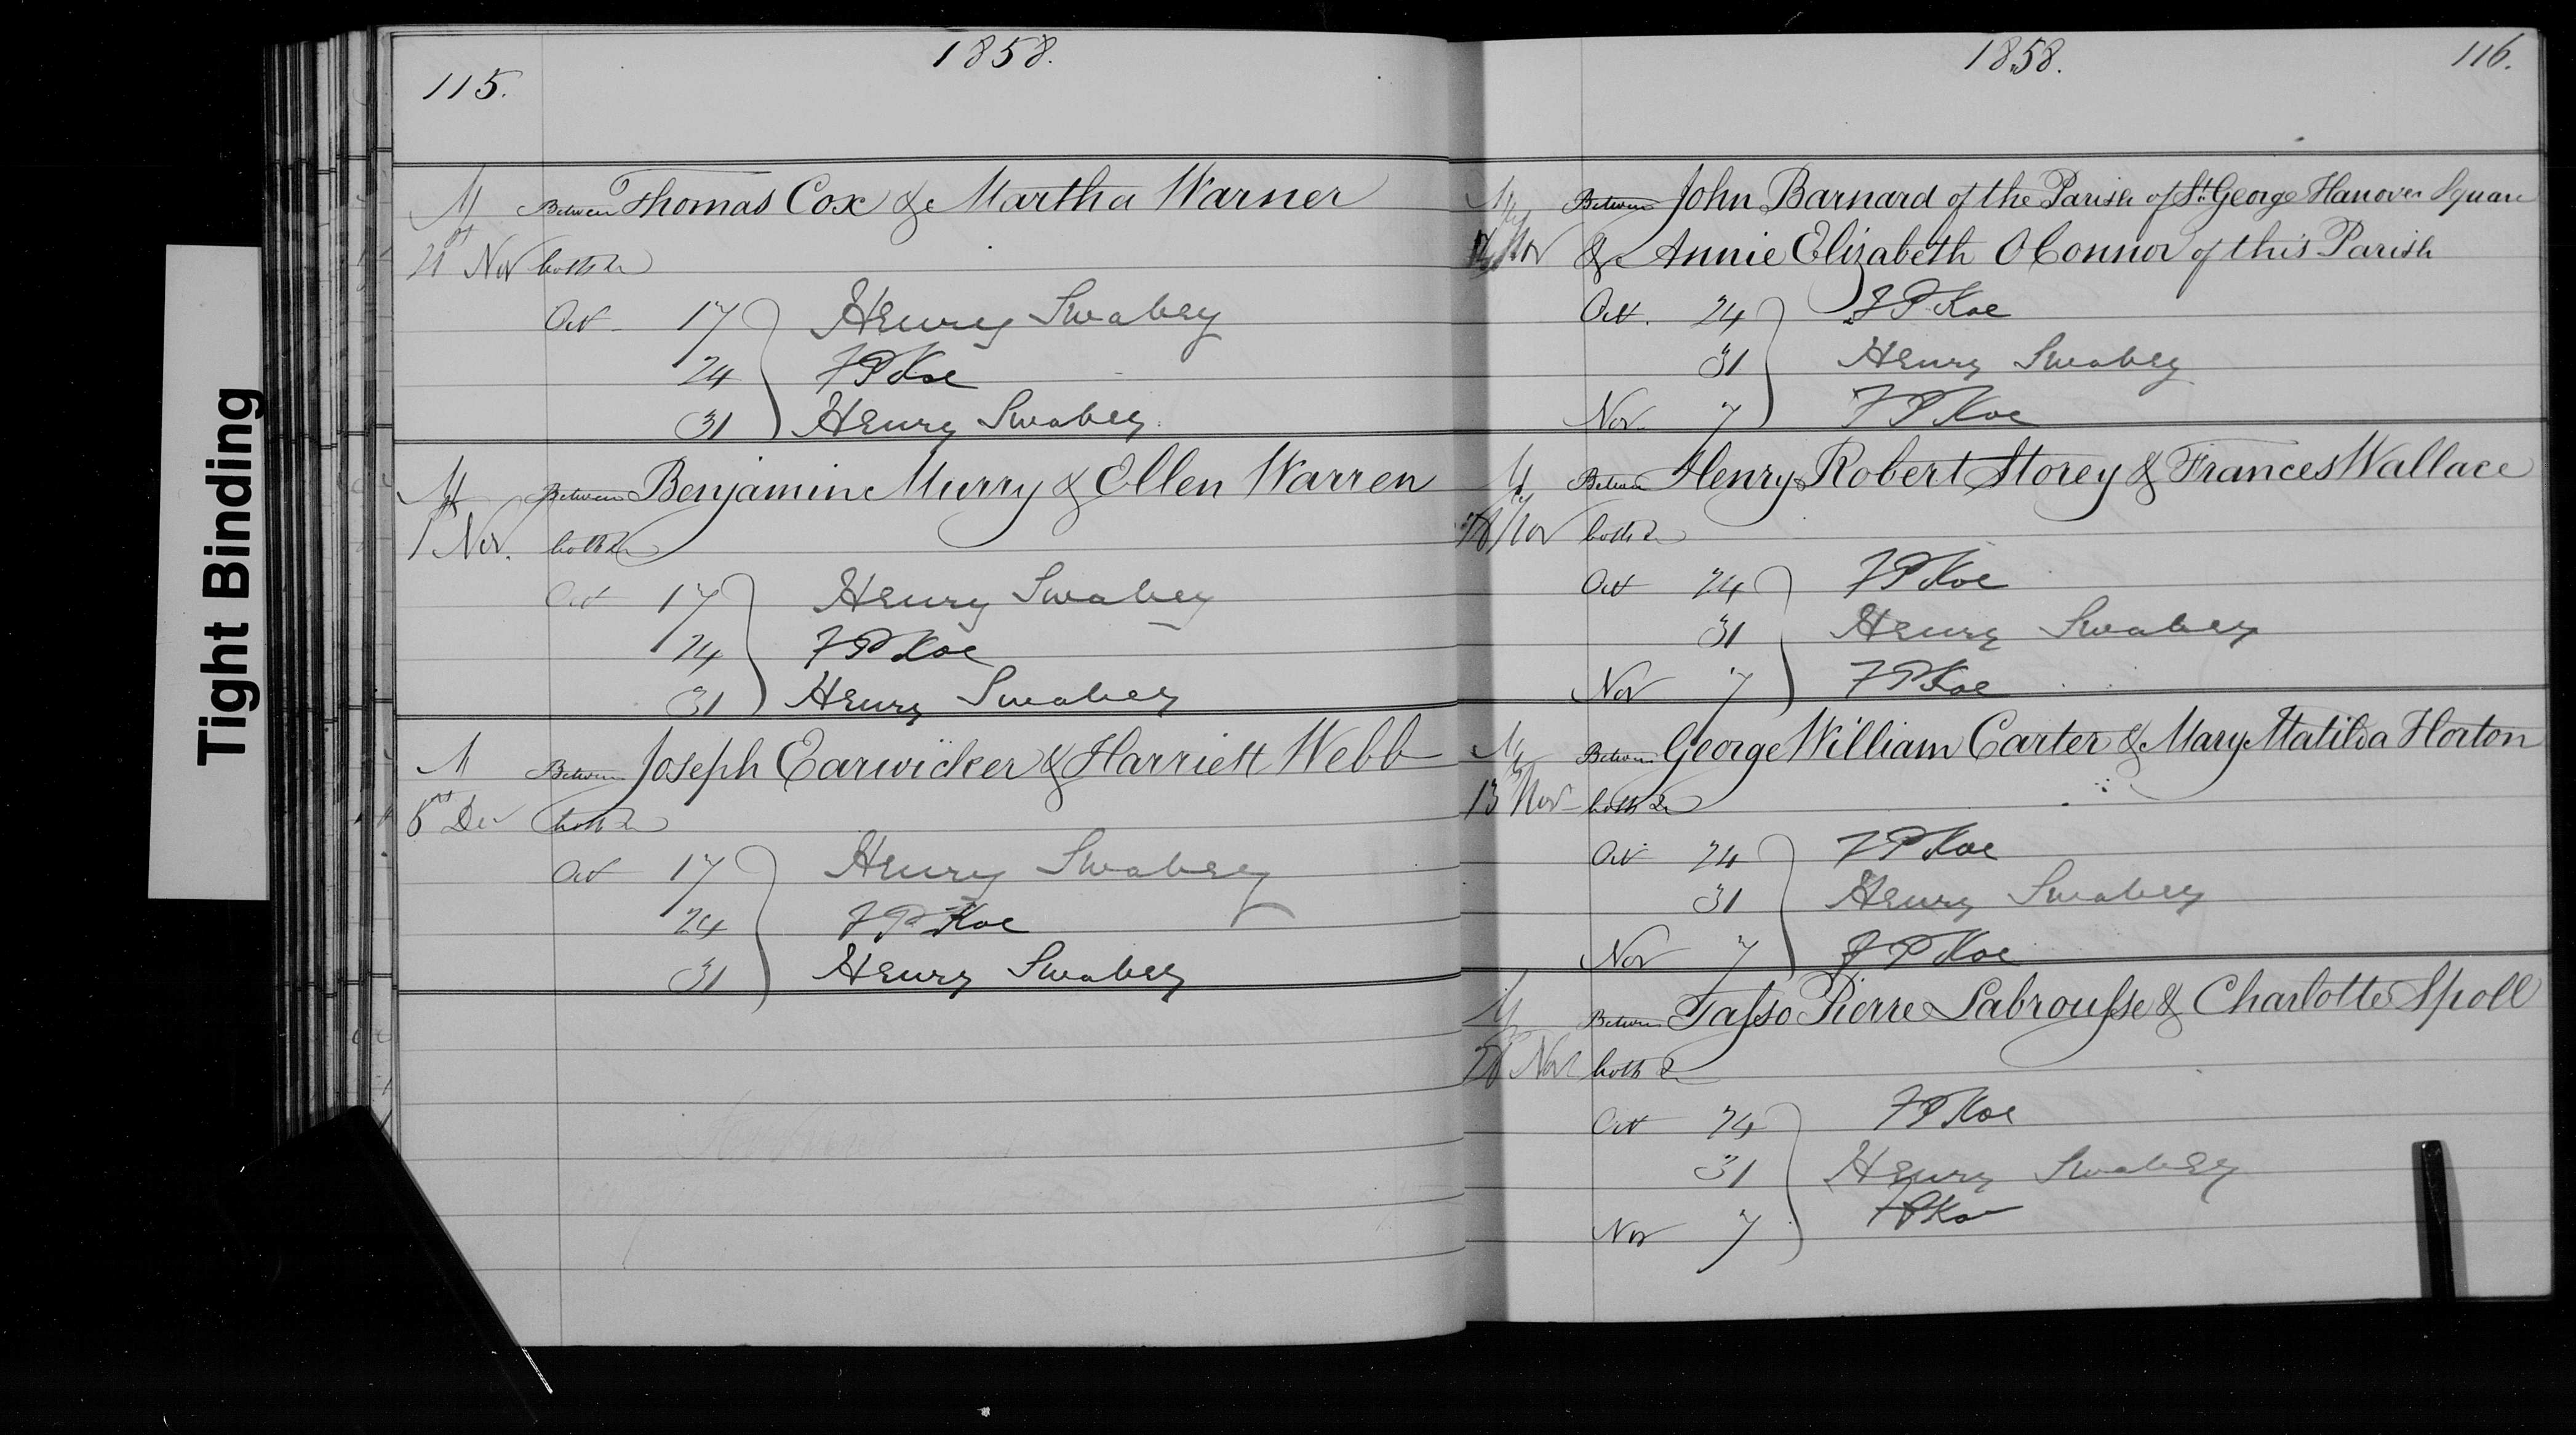 Tight Binding
115.
1858.
M Between Thomas Cox & Martha Warner
21st Nov both
Oct 17 Henry Swabey
24 F P Koe
31 Henry Swabey
M Between Benjamin Murry & Ellen Warren
1st Nov. both
Oct 17 Henry Swabey
24 F P Koe
31 Henry Swabey
M Between Joseph Earwicker & Harriett Webb
Dec both
Oct 17 Henry Swabey
24 F P Koe
31 Henry Swabey
1858.
116.
M Between John Barnard of the Parish of St. George Hanover Square
Nov & Annie Elizabeth OConnor of this Parish
Oct. 24 F P Koe
31 Henry Swabey
Nov 7 F P Koe
M Between Henry Robert Storey & Frances Wallace
Nov both
Oct 24 F P Koe
31 Henry Swabey
Nov 7 F P Koe
M Between George William Carter & Mary Matilda Horton
13 Nov both
Oct 24 F P Koe
31 Henry Swabey
Nov 7 F P Koe
M Between Taſso Pierre Labrouſse & Charlotte Spoll
Nov both
Oct 24 F P Koe
31 Henry Swabey
Nov 7 F P Koe